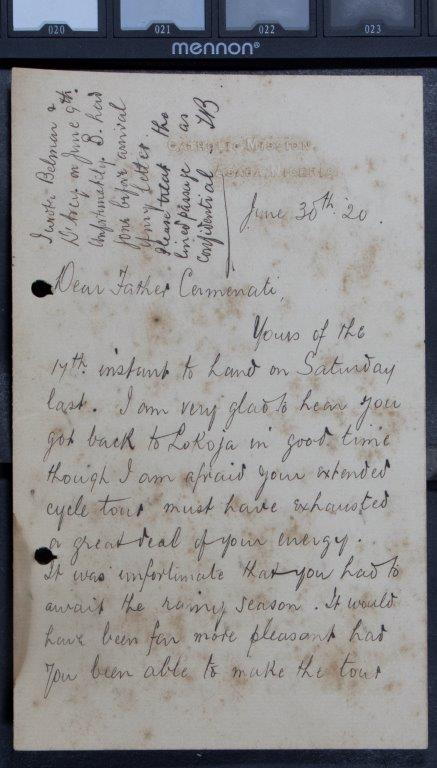 020 021 022 023
mennon®
I wrote Belman &
on June 9th.
Unfortunately B. had
gone before arrival
of my letter
Please treat the
lined passage as
confidential TB
CATHOLIC MISSION
ASABA, NIGERIA
June 30th '20.
Dear Father Cermenati,
Yours of the
17th instant to hand on Saturday
last. I am very glad to hear you
got back to Lokoja in good time
though I am afraid your extended
cycle tour must have exhausted
a great deal of your energy.
It was unfortunate that you had to
await the rainy season. It would
have been far more pleasant had
you been able to make the tour